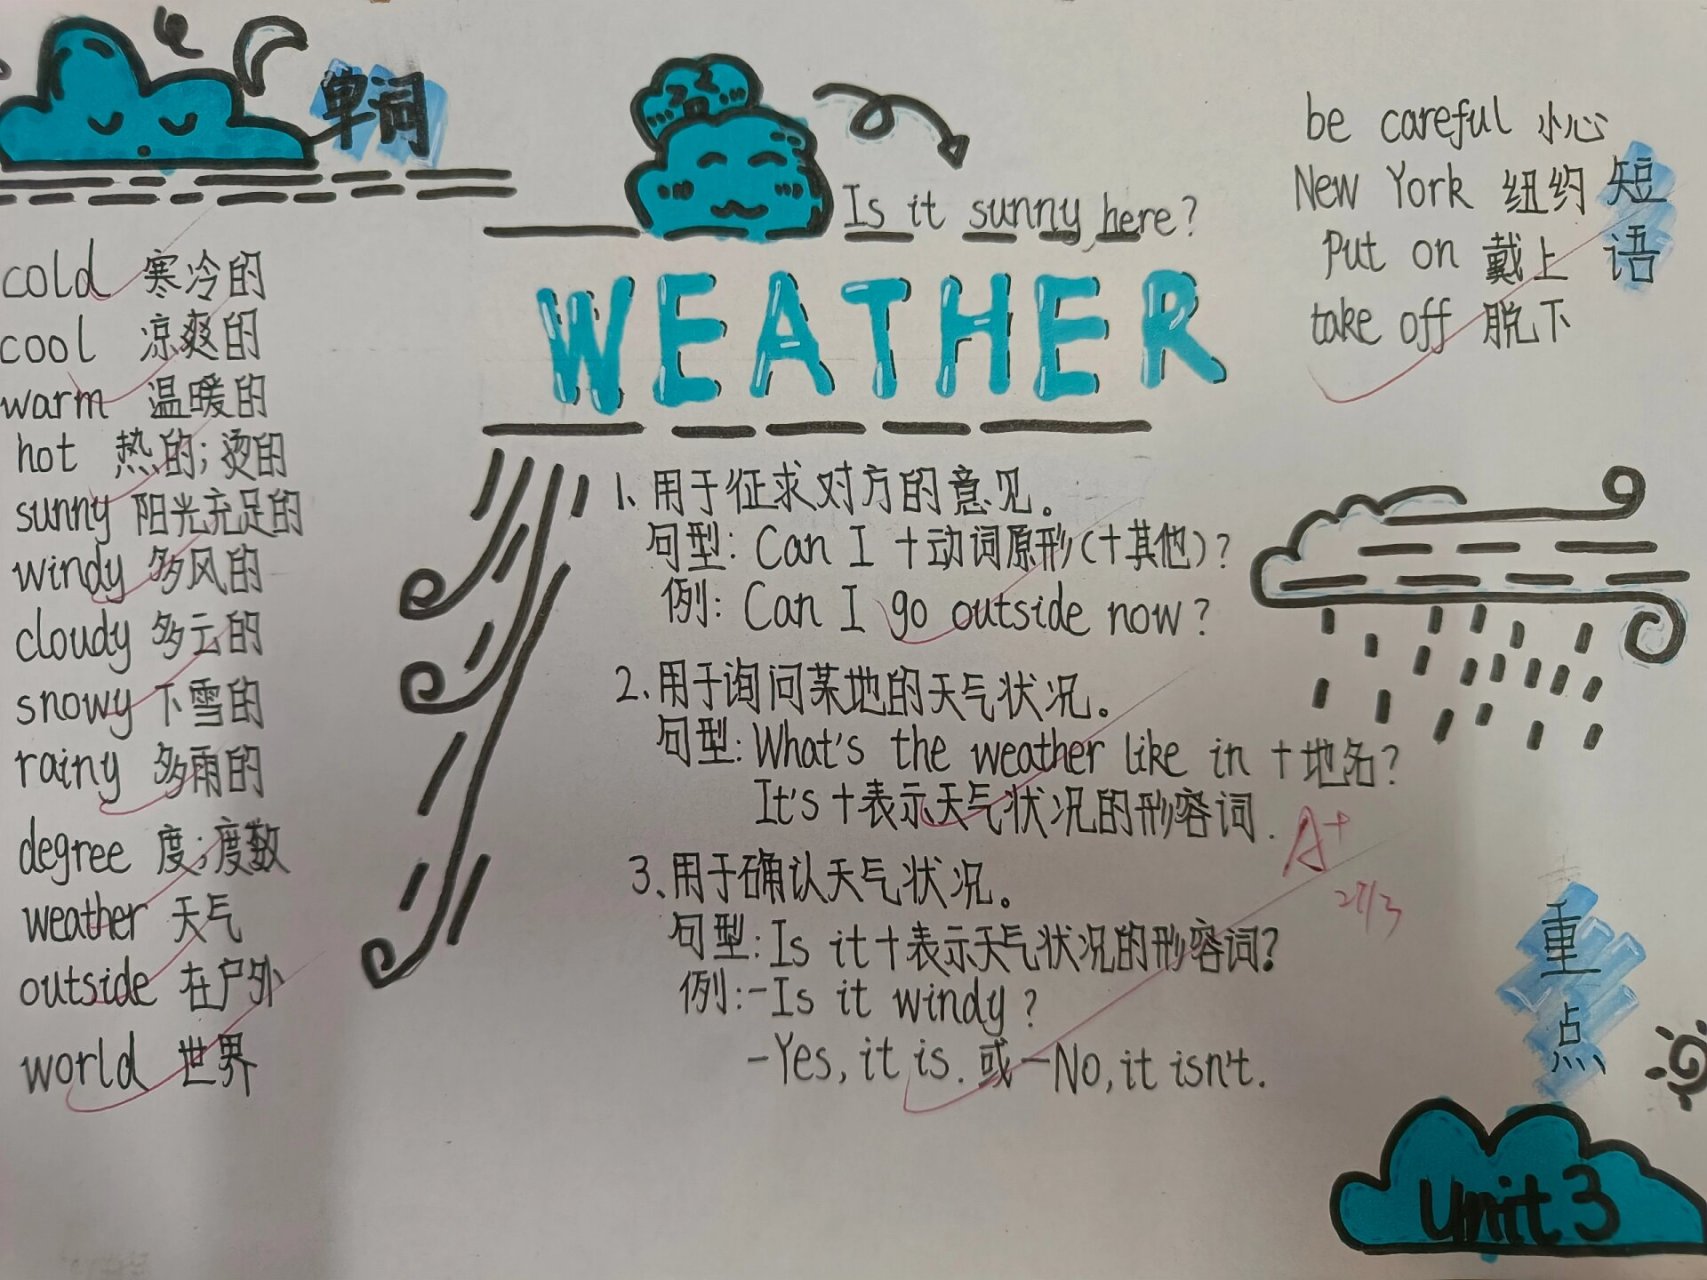 单词
cold 寒冷的
cool 凉爽的
warm 温暖的
hot 热的;烫的
sunny 阳光充足的
windy 多风的
cloudy 多云的
snowy 下雪的
rainy 多雨的
degree 度;度数
weather 天气
outside 在户外
world 世界
Is it sunny here?
WEATHER
1、用于征求对方的意见。
句型: Can I +动词原形(+其他)?
例: Can I go outside now?
2、用于询问某地的天气状况。
句型: What's the weather like in +地名?
It's +表示天气状况的形容词.
3、用于确认天气状况。
句型: Is it +表示天气状况的形容词?
例:-Is it windy?
-Yes, it is. 或 -No, it isn't.
be careful 小心
New York 纽约
Put on 戴上
take off 脱下
短语
A+
27/3
重点
Unit 3